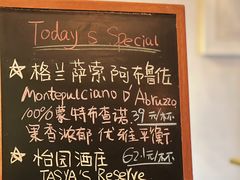 Today's Special
☆ 格兰萨索阿布鲁佐
Montepulciano D'Abruzzo
100%蒙特布查诺 39元/杯
果香浓郁.优雅平衡
☆ 怡园酒庄 62.1元/杯
TASYA'S Reserve